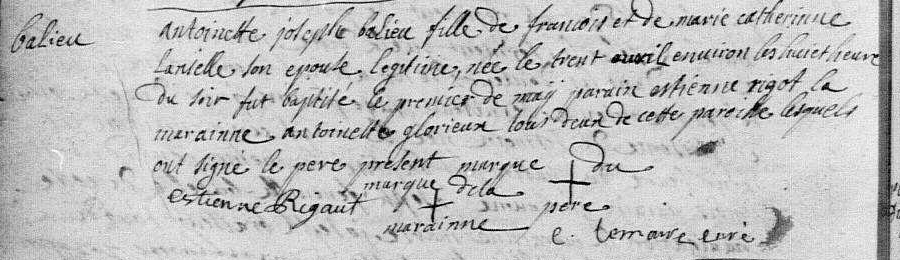 balieu
antoinette josephe balieu fille de francois et de marie catherinne
son epouse legitime, née le trent avril environ les huict heure
du soir fut baptise le premier de maÿ parain estienne rigot la
marainne antoinette glorieux tous deux de cette paroche lesquels
ont signé le pere present marque du
estienne Rigaut marque dela pere
marainne e. lemaire curé